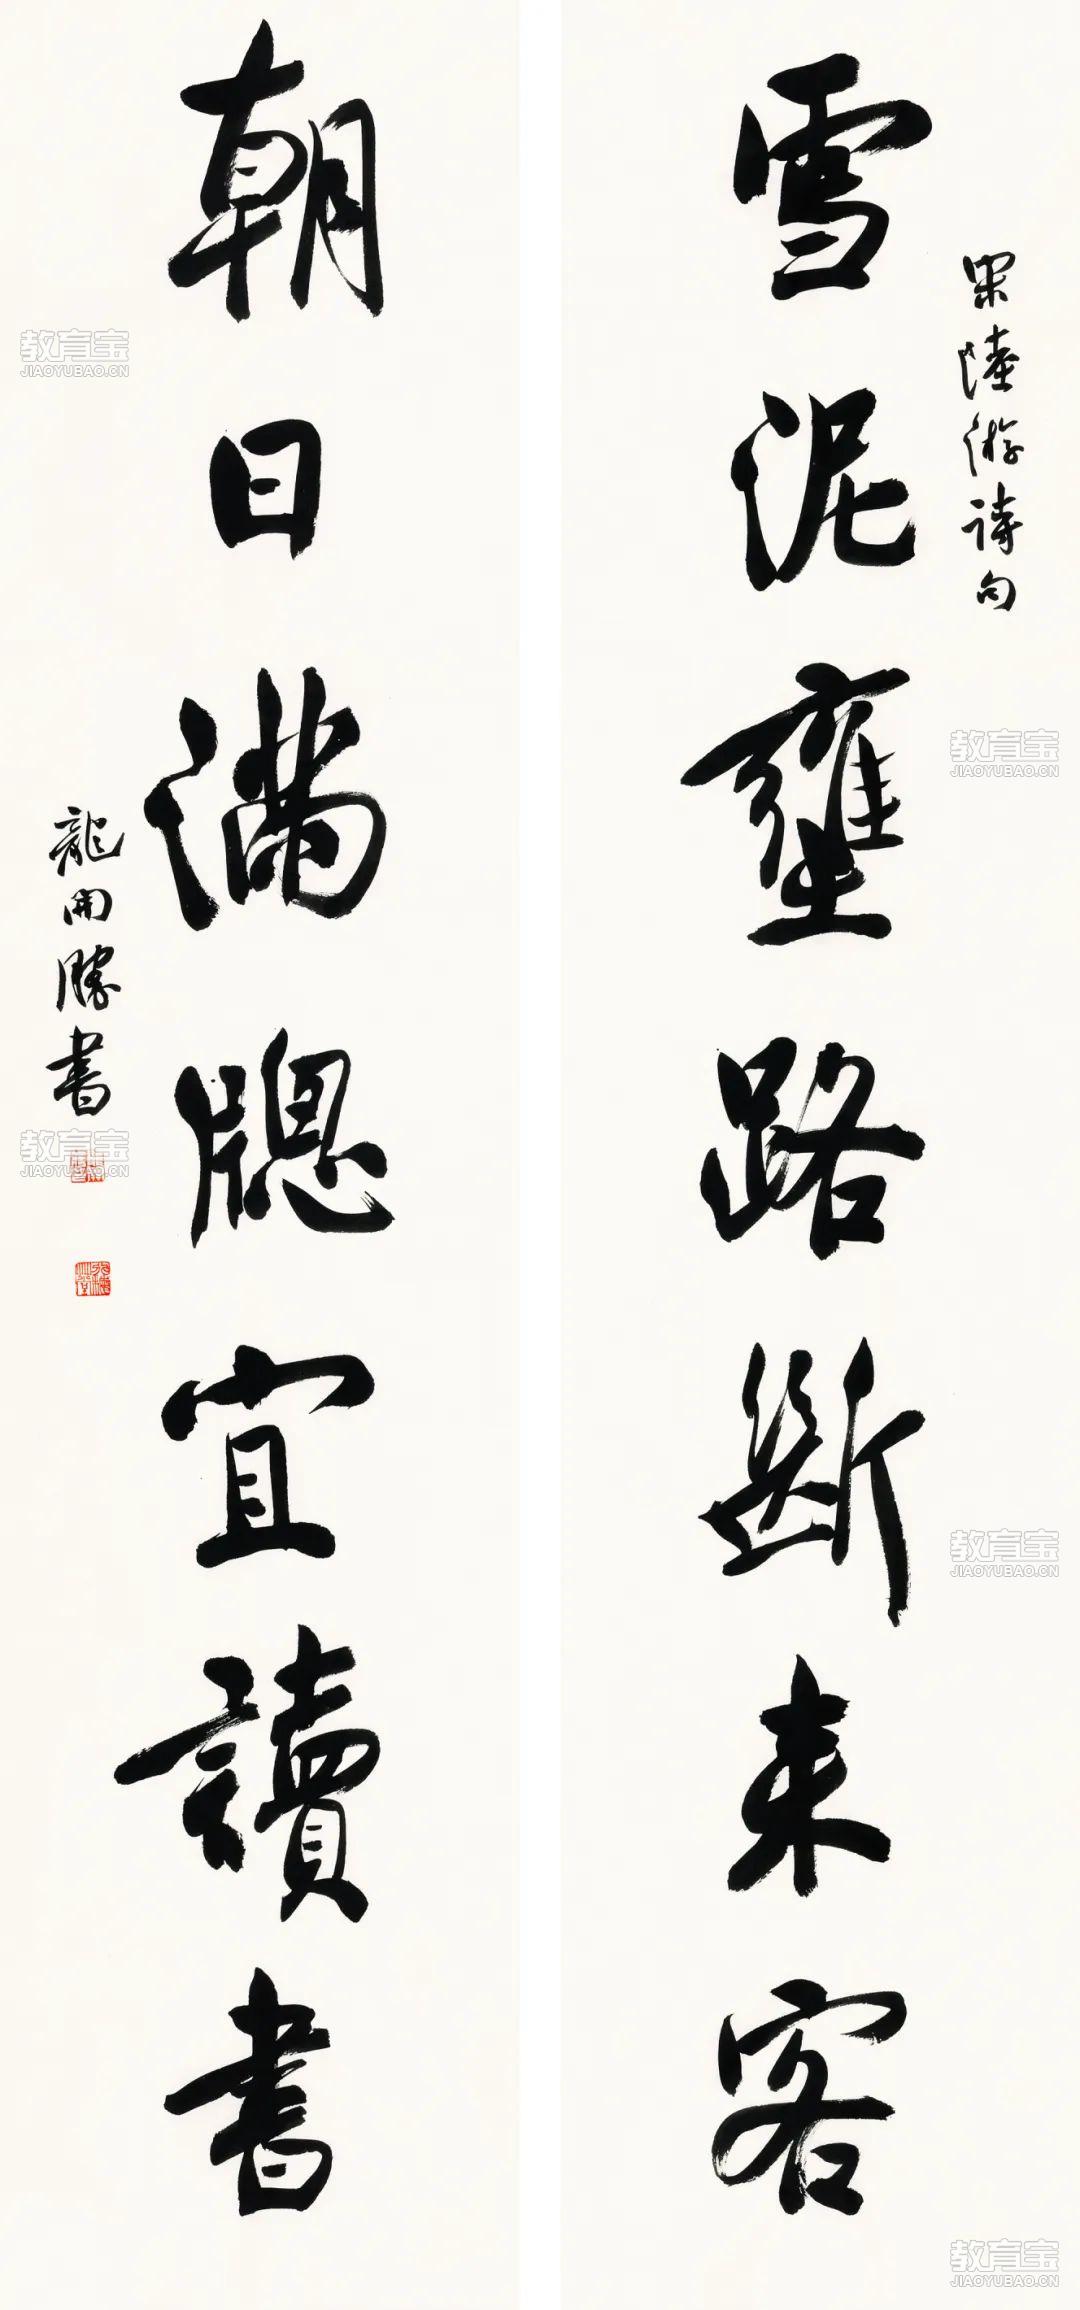 陸游詩句
雪泥壅路斷来客
朝日滿牕宜讀書
龍開勝書
教育宝
JIAOYUBAO.CN
教育宝
JIAOYUBAO.CN
教育宝
JIAOYUBAO.CN
教育宝
JIAOYUBAO.CN
教育宝
JIAOYUBAO.CN